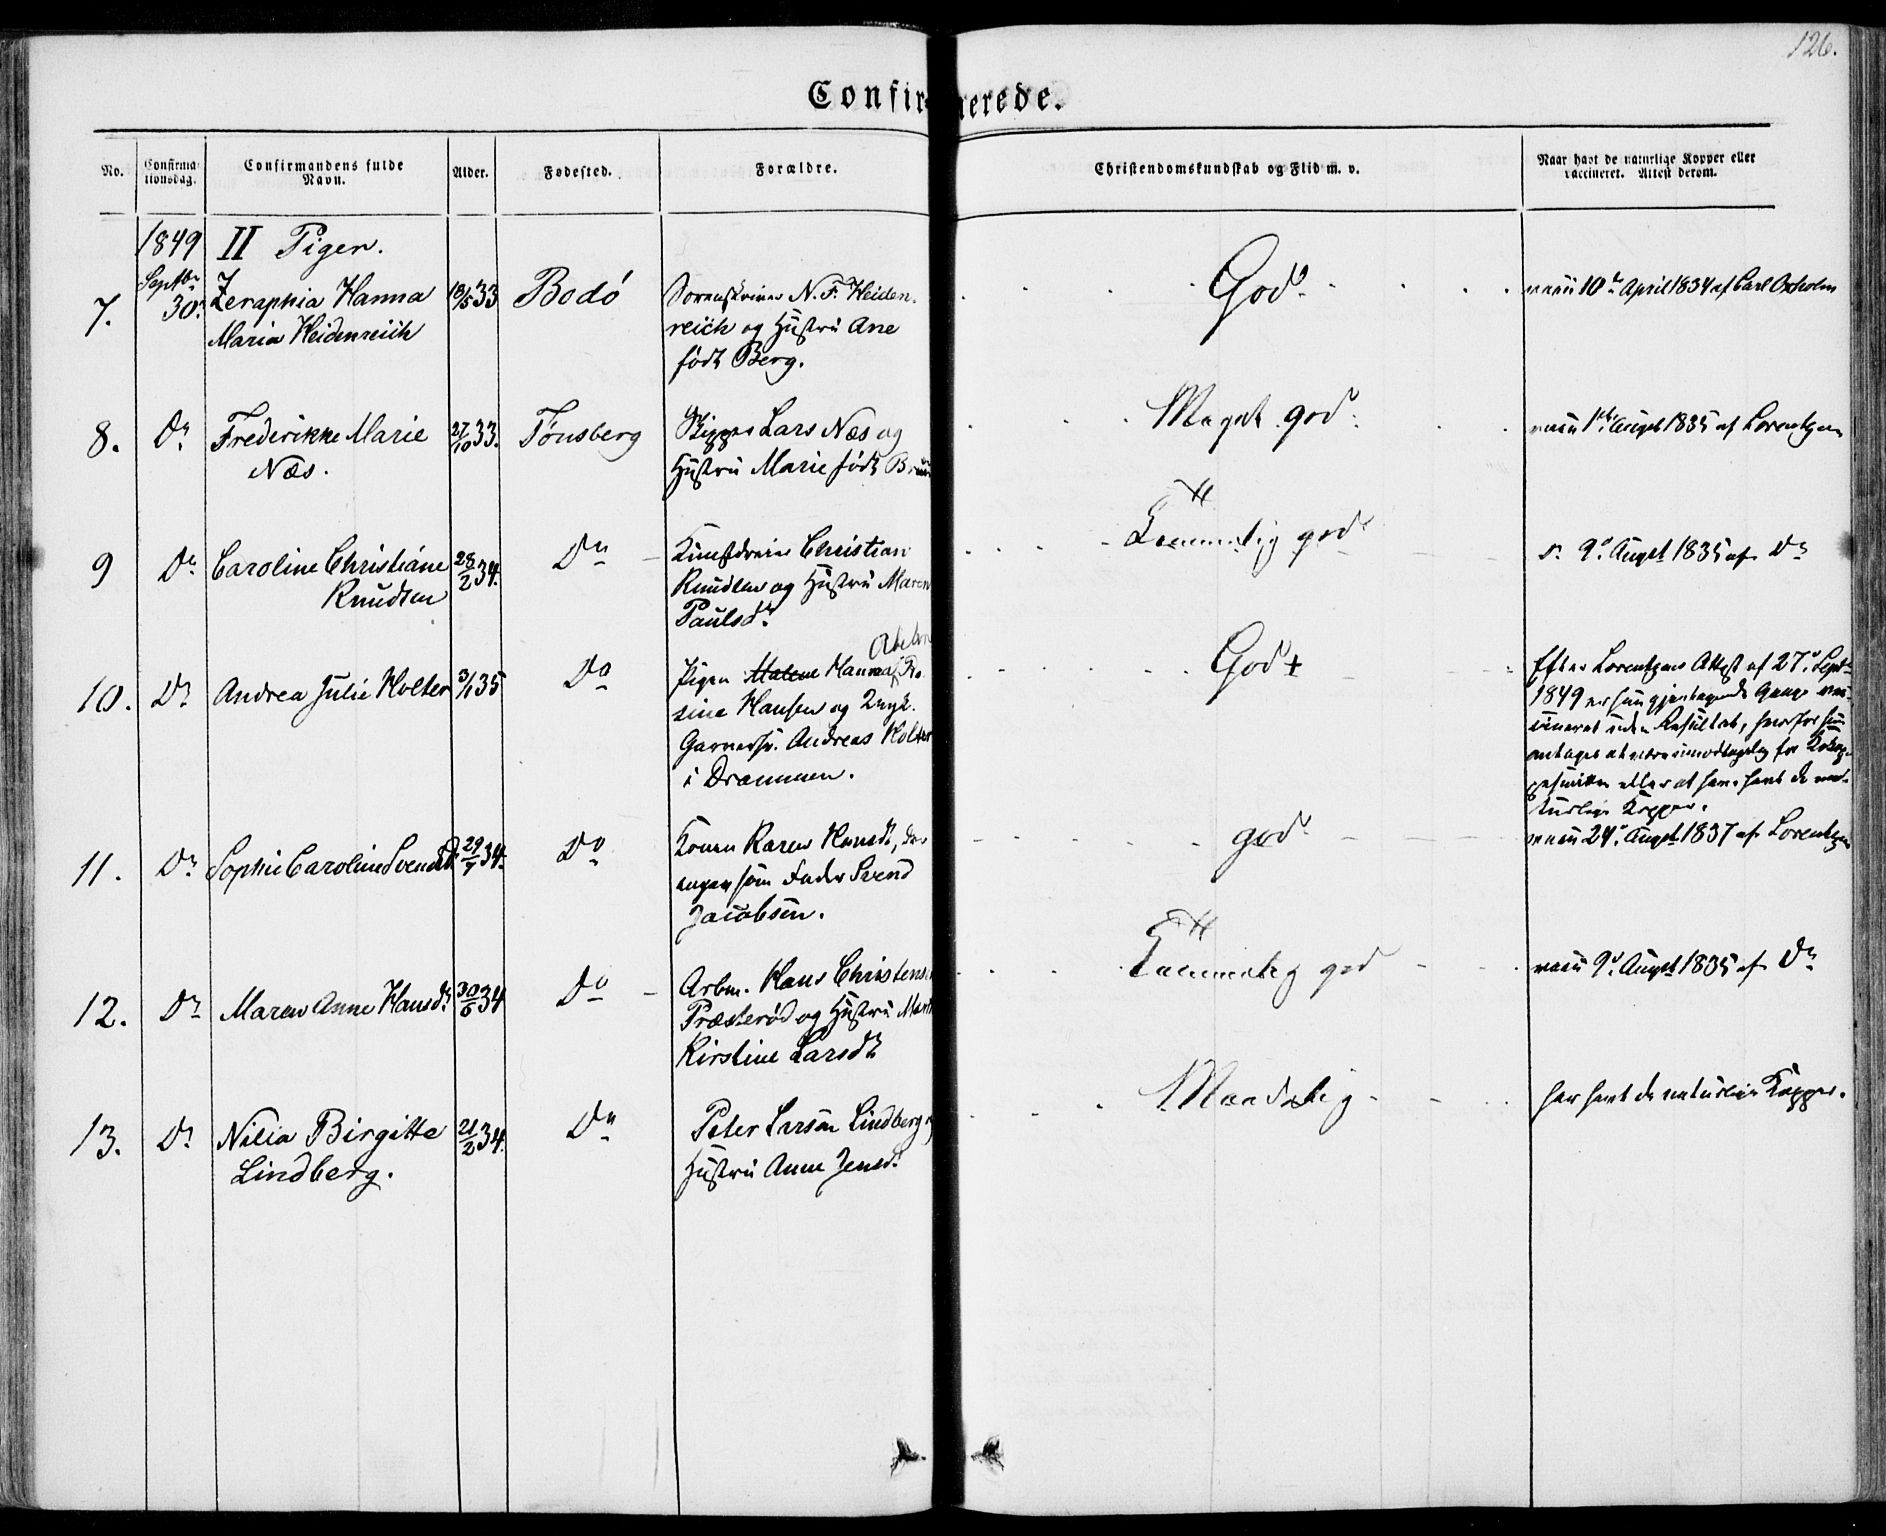 126.
Confirmerede.
No.
Confirmationsdag.
Confirmandens fulde Navn.
Alder.
Fødested.
Forældre.
Christendomskundskab og Flid m. v.
Naar havt de naturlige Kopper eller vaccineret. Attest derom.
1849 II Piger.
7. Septbr 30. Zeraphia Hanna
Maria Heidenreich
18/5 33
Bodó
Sorenskriver N. F. Heiden-
reich og Hustru Ane
født Berg.
God
vacc 10de April 1834 af Carl Oxholm
8. Do Frederikke Marie
Næs.
27/10 33.
Tønsberg
Skipper Lars Næs og
Hustru Marie født Bruun
Meget god.
vacc 1ste Augst 1835 af Lorentzen
9 Do Caroline Christiane
Knudsen
28/2 34.
Do
Christian
Knudsen og Hustru Maren
Paulsd.
Temmelig god
d. 9de Augst 1835 af Do
10. Do Andrea Julie Holter
3/1 35
Do
Pigen Malene Hanna Ro-
sine Hansen og Ungk.
Garversv. Andreas Holter
i Drammen.
God +
Efter Lorentzens Attest af 27de Septr
1849 er hun gjentagende Gange vac-
cineret uden Resultat, hvorfor hun
antages at være umodtagelig for Kokop-
pesmitten eller at have havt de na-
turlige Kopper.
11. Do Sophie Caroline Svendsd.
29/7 34.
Do
Konen Karen Hansdr,
som Fader Svend
Jacobsen.
god
vacc 24de Augst 1837 af Lorentzen
12. Do Maren Anne Hansdr
30/5 34
Do
Arbm. Hans Christensen
Præsterød og Hustru
Kirstine Larsdr
Temmelig god
vacc 9de Augst 1835 af Do
13. Do Nilia Birgitte
Lindberg.
21/2 34.
Do
Peter Larsen Lindberg og
Hustru Anne Jensd.
Maadelig
har havt de naturlige Kopper.